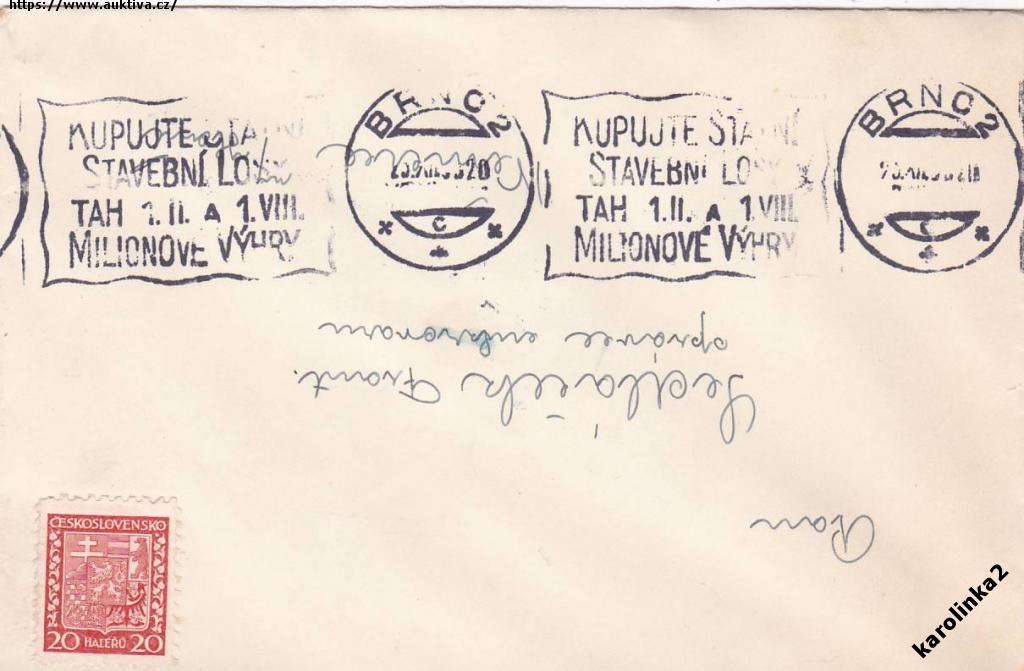 https://www.auktiva.cz/
KUPUJTE
STAVEBNÍ LOSY
TAH 1.II. A 1.VIII.
MILIONOVÉ VÝHRY
BRNO 2
C
KUPUJTE STÁTNÍ
STAVEBNÍ LOSY
TAH 1.II. A 1.VIII.
MILIONOVÉ VÝHRY
BRNO 2
Pan
Sedláček Frant.
správce
ČESKOSLOVENSKO
20 HALÉŘŮ 20
karolinka2